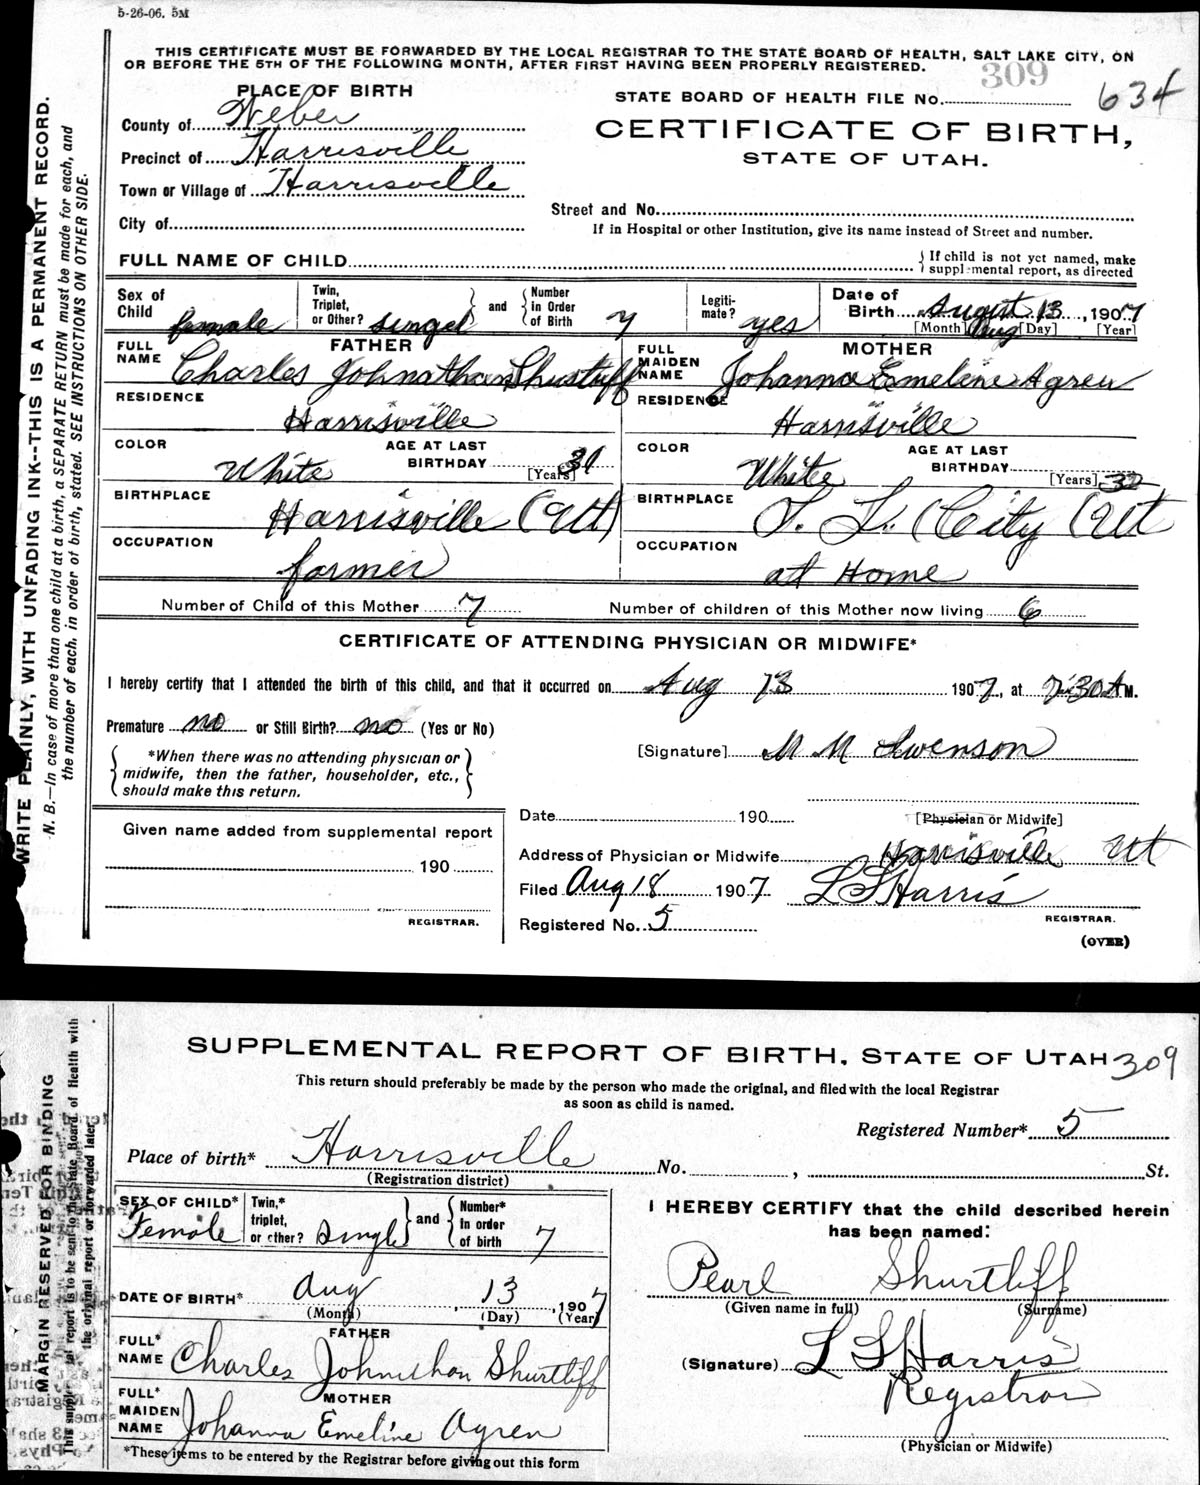 5-26-06. 5M
THIS CERTIFICATE MUST BE FORWARDED BY THE LOCAL REGISTRAR TO THE STATE BOARD OF HEALTH, SALT LAKE CITY, ON
OR BEFORE THE 5TH OF THE FOLLOWING MONTH, AFTER FIRST HAVING BEEN PROPERLY REGISTERED.
309
634
PLACE OF BIRTH
STATE BOARD OF HEALTH FILE No.
County of Weber
CERTIFICATE OF BIRTH,
Precinct of Harrisville
STATE OF UTAH.
Town or Village of Harrisville
City of
Street and No.
If in Hospital or other Institution, give its name instead of Street and number.
FULL NAME OF CHILD
If child is not yet named, make
supplemental report, as directed
Sex of Child female
Twin, Triplet, or Other? singel
and Number in Order of Birth 7
Legiti-mate? yes
Date of Birth August 13, 1907
[Month] Aug [Day] [Year]
FATHER
FULL NAME Charles Johnathan Shustuff
MOTHER
FULL MAIDEN NAME Johanna Emeline Agren
RESIDENCE Harrisville
RESIDENCE Harrisville
COLOR White AGE AT LAST BIRTHDAY 31 [Years]
COLOR White AGE AT LAST BIRTHDAY [Years] 32
BIRTHPLACE Harrisville (Ut)
BIRTHPLACE S. L. City (Ut
OCCUPATION farmer
OCCUPATION at Home
Number of Child of this Mother 7 Number of children of this Mother now living 6
CERTIFICATE OF ATTENDING PHYSICIAN OR MIDWIFE*
I hereby certify that I attended the birth of this child, and that it occurred on Aug 13 1907, at 7:30 A M.
Premature no or Still Birth? no (Yes or No)
*When there was no attending physician or
midwife, then the father, householder, etc.,
should make this return.
[Signature] M M Swenson
Date 190
[Physician or Midwife]
Given name added from supplemental report
190
REGISTRAR.
Address of Physician or Midwife Harrisville Ut
Filed Aug 18 1907 L S Harris
REGISTRAR.
Registered No. 5
(OVER)
WRITE PLAINLY, WITH UNFADING INK--THIS IS A PERMANENT RECORD.
N. B.—In case of more than one child at a birth, a SEPARATE RETURN must be made for each, and
the number of each, in order of birth, stated. SEE INSTRUCTIONS ON OTHER SIDE.
SUPPLEMENTAL REPORT OF BIRTH, STATE OF UTAH 309
This return should preferably be made by the person who made the original, and filed with the local Registrar
as soon as child is named.
Registered Number* 5
Place of birth* Harrisville No. , St.
(Registration district)
SEX OF CHILD* Female
Twin,* triplet, or other? Single
and Number* in order of birth 7
DATE OF BIRTH* Aug 13, 1907
(Month) (Day) (Year)
FATHER
FULL* NAME Charles Johnathan Shurtliff
MOTHER
FULL* MAIDEN NAME Johanna Emeline Agren
*These items to be entered by the Registrar before giving out this form
I HEREBY CERTIFY that the child described herein
has been named:
Pearl Shurtliff
(Given name in full) (Surname)
(Signature) L S Harris
Registrar
(Physician or Midwife)
MARGIN RESERVED FOR BINDING
This supplemental report is to be sent to the State Board of Health with
the original report or forwarded later